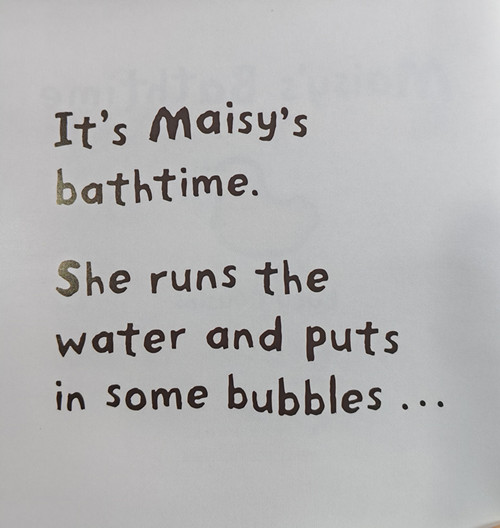 It's Maisy's
bathtime.
She runs the
water and puts
in some bubbles ...